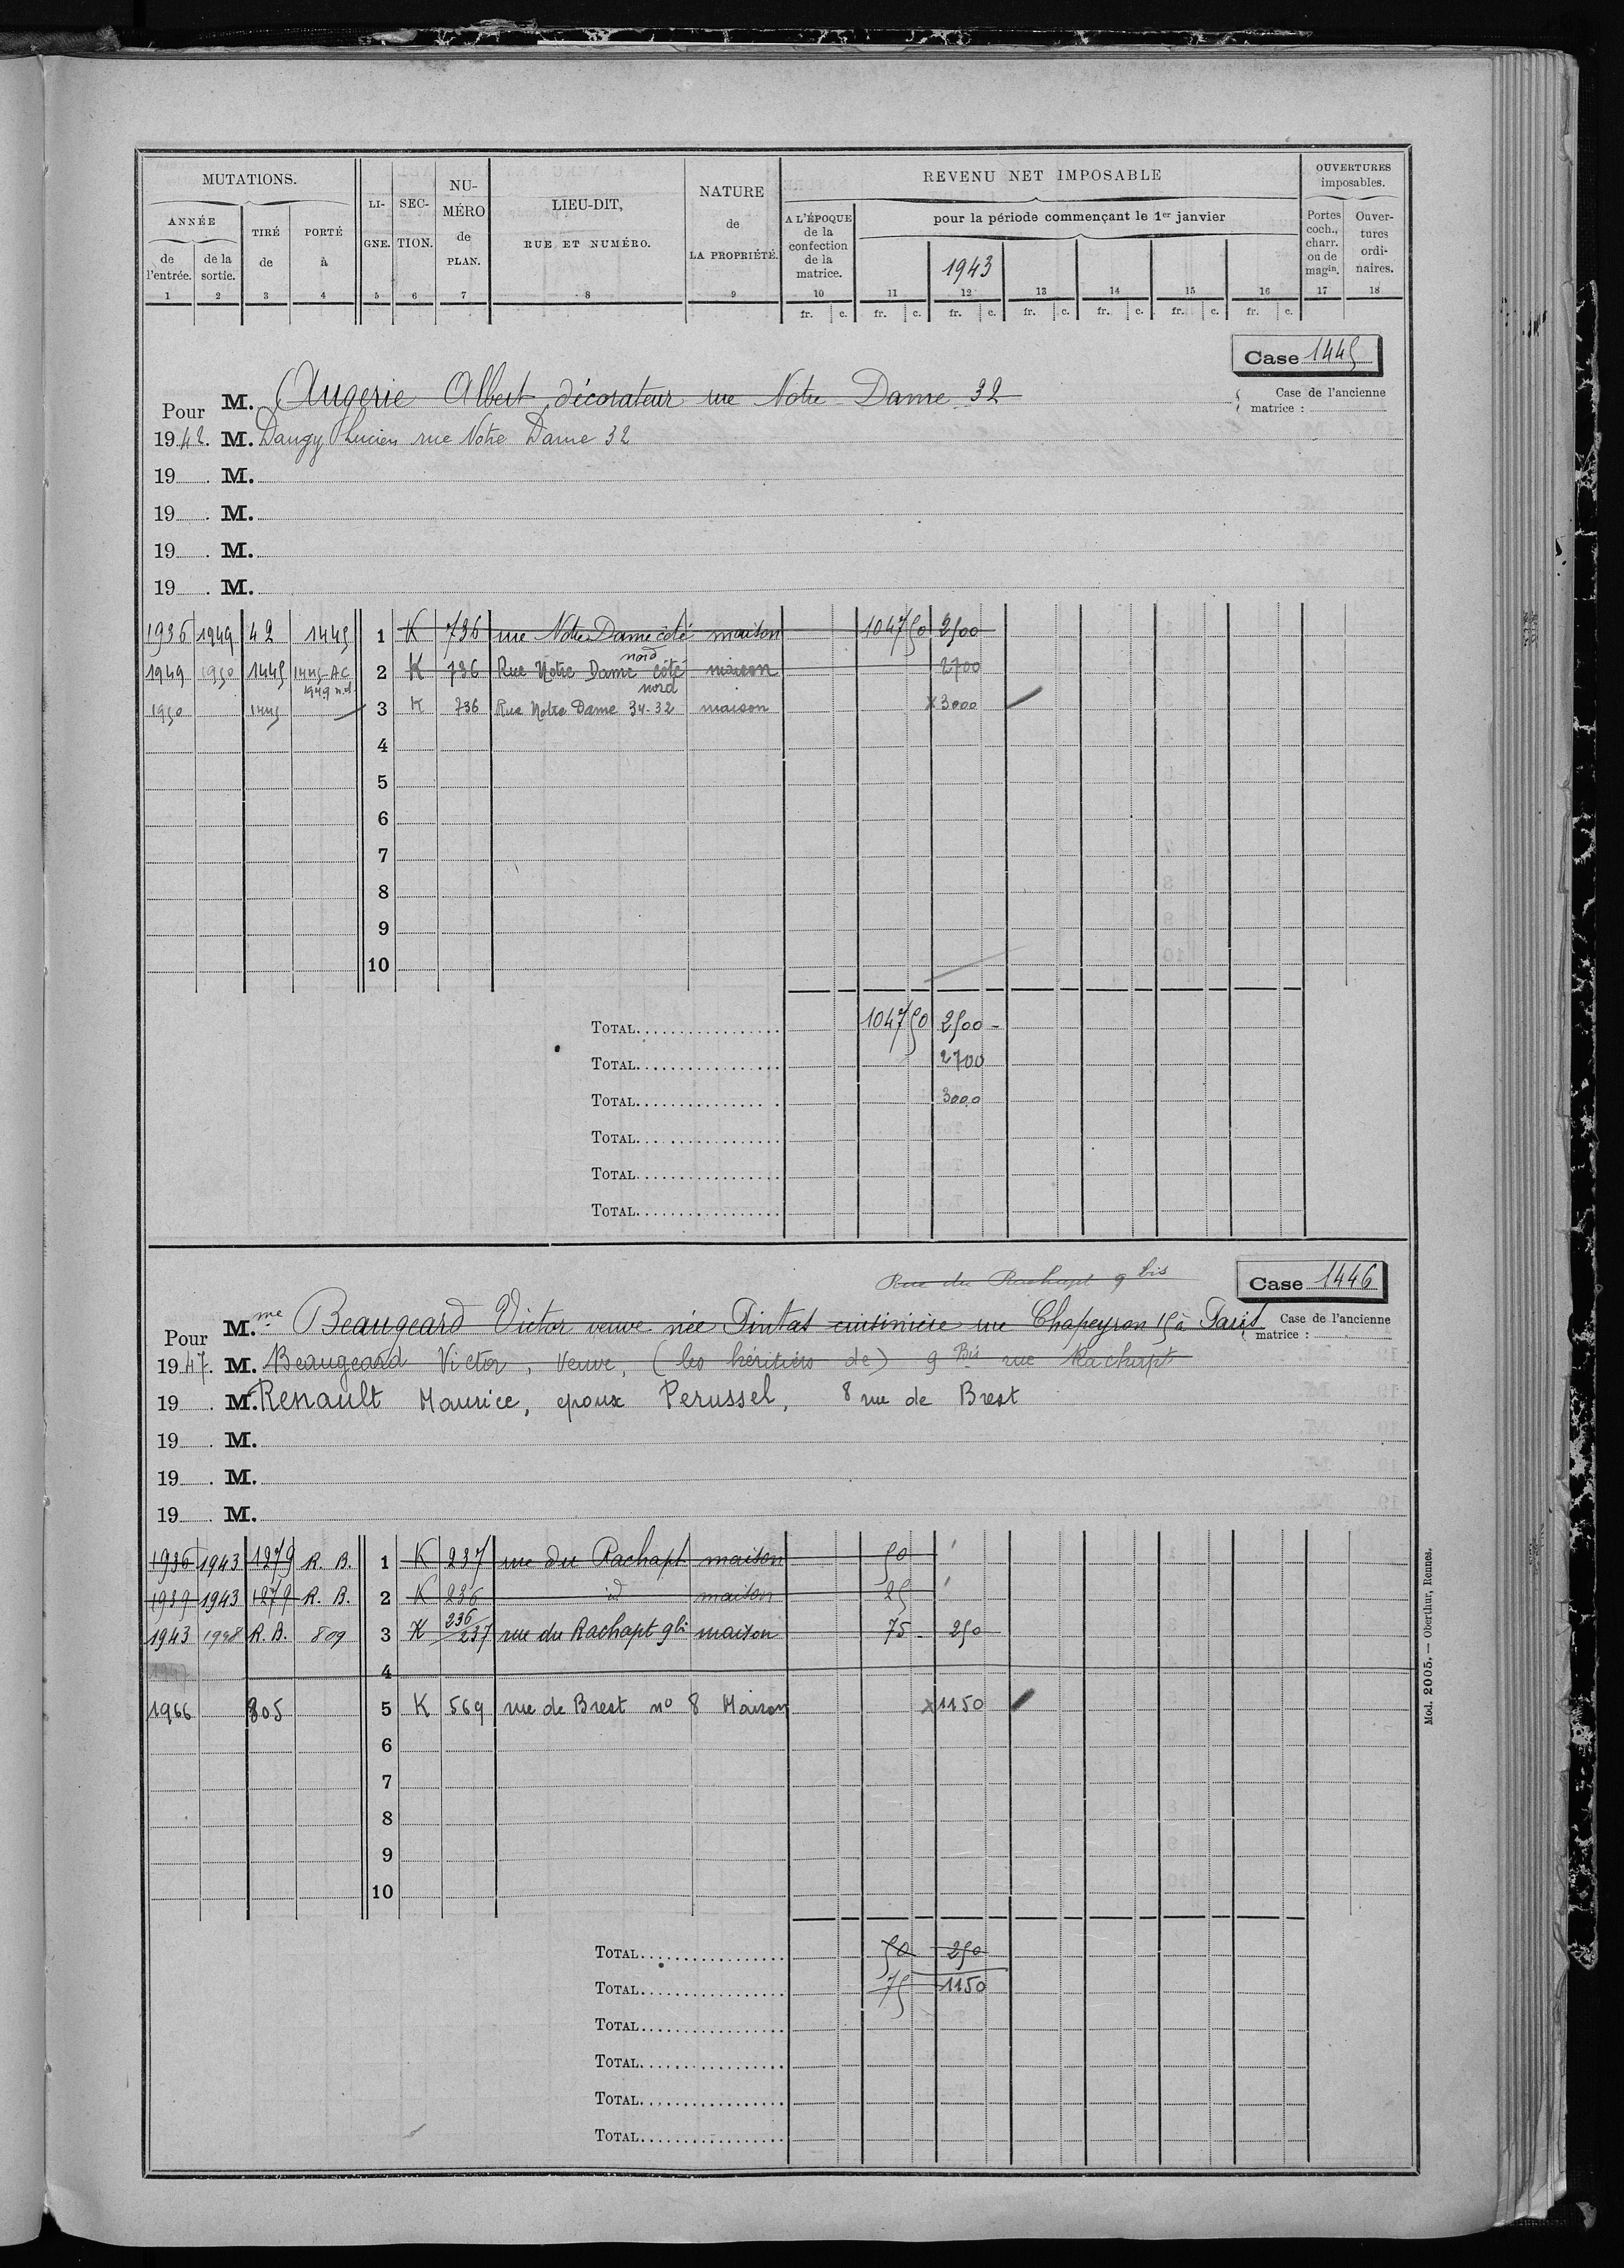 MUTATIONS.
ANNÉE
de l'entrée.
de la sortie.
TIRÉ de
PORTÉ à
LI-GNE.
SEC-TION.
NU-MÉRO de PLAN.
LIEU-DIT,
RUE ET NUMÉRO.
NATURE de LA PROPRIÉTÉ.
REVENU NET IMPOSABLE
A L'ÉPOQUE de la confection de la matrice.
pour la période commençant le 1er janvier
1943
OUVERTURES imposables.
Portes coch., charr. ou de magin.
Ouver-tures ordi-naires.
1 2 3 4 5 6 7 8 9 10 11 12 13 14 15 16 17 18
fr. c. fr. c. fr. c. fr. c. fr. c. fr. c. fr. c.
Case 1445
Pour M. Augerie Albert décorateur rue Notre Dame 32
Case de l'ancienne matrice :
1942. M. Dangy Lucien rue Notre Dame 32
19 . M.
19 . M.
19 . M.
19 . M.
1936 1949 42 1445 1 K 736 rue Notre Dame côté nord maison 1047 50 2500
1949 1950 1445 1445-AC 1949 n.d. 2 K 736 Rue Notre Dame côté nord maison 2700
1950 1445 3 K 736 Rue Notre Dame 34-32 maison x 3000
4
5
6
7
8
9
10
TOTAL 1047 50 2500 -
TOTAL 2700
TOTAL 3000
TOTAL
TOTAL
TOTAL
Rue du Rachapt 9 bis
Case 1446
Pour M.me Beaugeard Victor veuve née Pintat cuisinière rue Chapeyron 15 à Paris
Case de l'ancienne matrice :
1947. M. Beaugeard Victor, Veuve, (les héritiers de) 9 Bis rue Rachapt
19 . M. Renault Maurice, epoux Perussel, 8 rue de Brest
19 . M.
19 . M.
19 . M.
1936 1943 1279 R. B. 1 K 237 rue du Rachapt maison 50
1939 1943 1279 R. B. 2 K 236 id maison 25
1943 1948 R. B. 809 3 K 236/237 rue du Rachapt 9 bi maison 75 - 250
4
1966 805 5 K 569 rue de Brest no 8 Maison x 1150
6
7
8
9
10
TOTAL 50 250
TOTAL 75 1150
TOTAL
TOTAL
TOTAL
TOTAL
Mod. 2005. — Oberthur, Rennes.